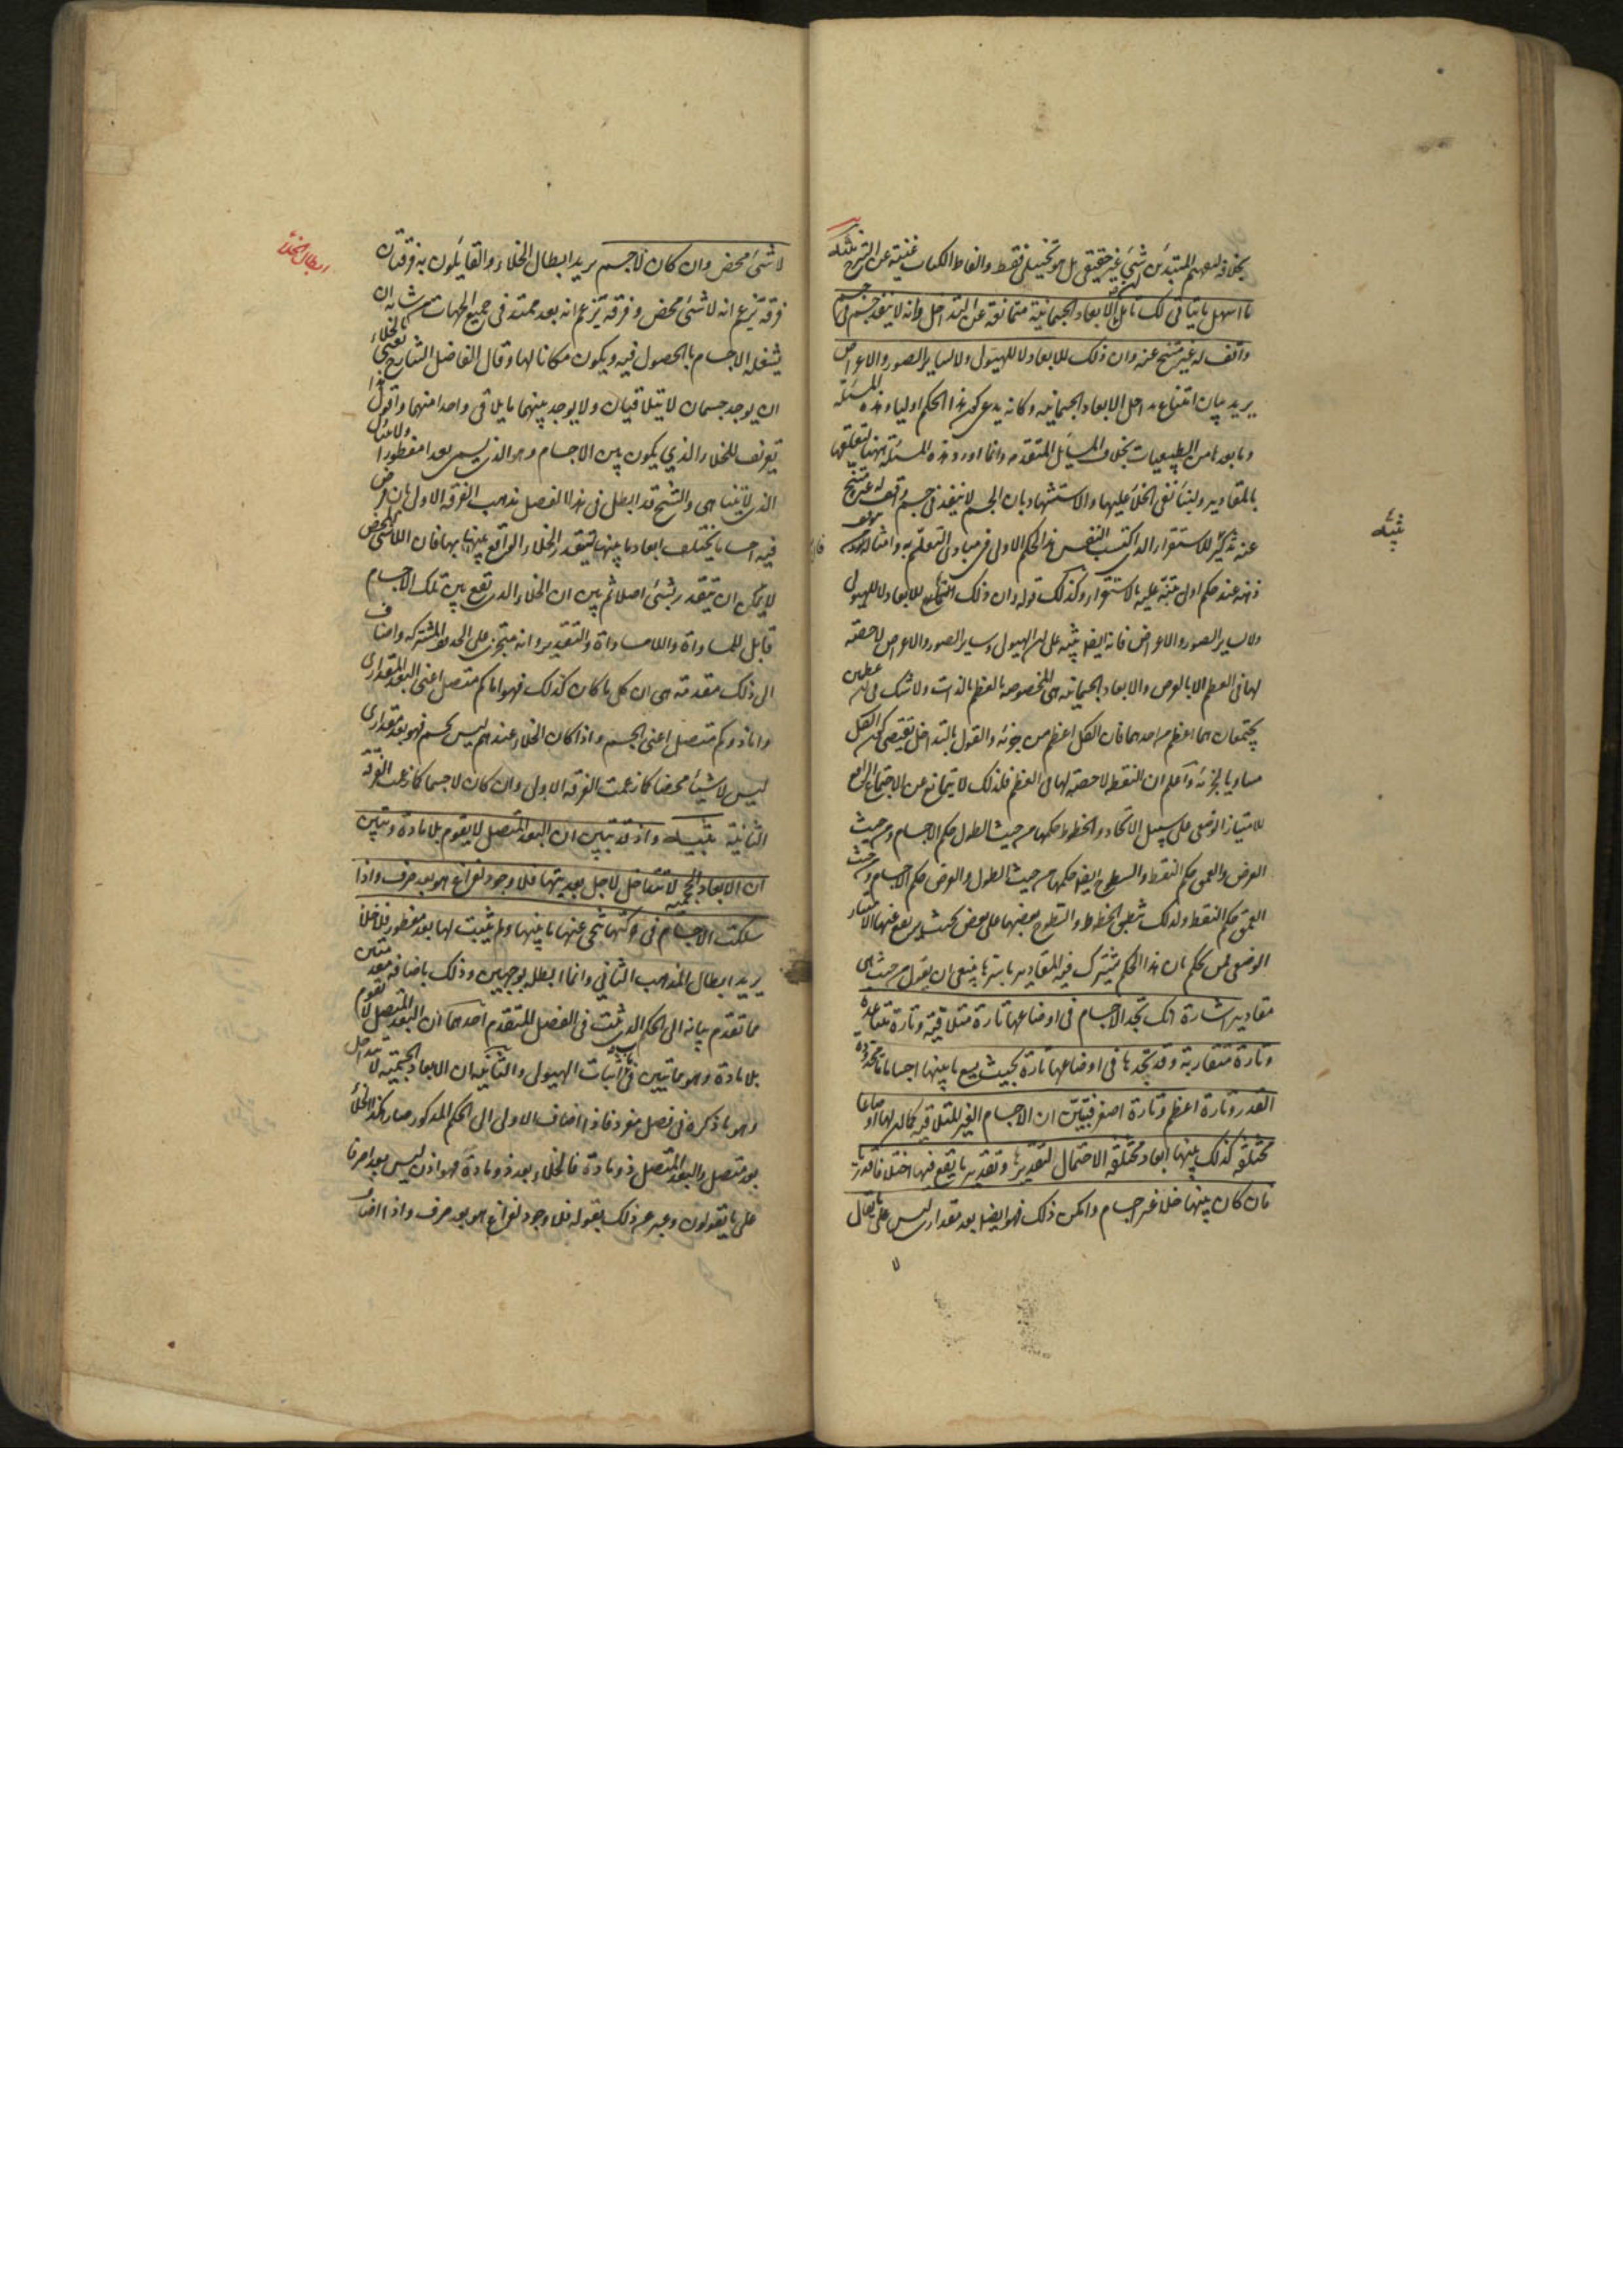 بخلافه لتفهيم المبتدئين شئ غير حقيقى بل هو تخييلى فقط والفاظ الكتاب غنية عن الشرح تنبيه
ما اسهل ما يتأتى لك تأمل ان الابعاد الجسمانية متمانعة عن التداخل وانه لا ينفذ جسم فى جسم
واقف له غير متنح عنه وان ذلك للابعاد لا للهيولى ولا لساير الصور والاعراض
يريد بيان امتناع تداخل الابعاد الجسمانية وكانه يدعى كون هذا الحكم اوليا وهذه المسئلة
وما بعدها من الطبيعيات بخلاف المسايل المتقدمة وانما اورد هذه المسئلة ههنا لتعلقها
بالمقادير ولبناء نفى الخلاء عليها والاستشهاد بان الجسم لا ينفذ فى جسم واقف له غير متنح
عنه تذكير للاستقراء الذى اكتسب النفس هذا الحكم الاولى فى مبادى التعلم به وامثاله
ذهنه عند حكم اولى متنبه عليه بالاستقراء وكذلك قوله وان ذلك للابعاد لا للهيولى
ولا لساير الصور والاعراض فانه ايضا تنبيه على ان الهيولى وساير الصور والاعراض لا حصة
لها فى العظم الا بالعرض والابعاد الجسمانية هى المخصوصة بالعظم بالذات ولا شك فى ان عظمين
يجتمعان هما اعظم من احدهما فان الكل اعظم من جزئه والقول بالتداخل يقتضى كون الكل
مساويا لجزئه واعلم ان النقط لا حصة لها فى العظم فلذلك لا يتمانع عن الاجتماع الرافع
للامتياز الوضعى على سبيل الاتحاد والخطوط حكمها من حيث الطول حكم الاجسام ومن حيث
العرض والعمق حكم النقط والسطوح ايضا حكمها من حيث الطول والعرض حكم الاجسام ومن حيث
العمق حكم النقط ولذلك ينطبق الخطوط والسطوح بعضها على بعض بحيث يرتفع عنها الامتياز
الوضعى فمن حكم بان هذا الحكم مشترك فيه المقادير باسرها ينبغى ان يقول من حيث هى
مقادير اشارة انك تجد الاجسام فى اوضاعها تارة متلاقية وتارة متباعدة
وتارة متقاربة وقد تجدها فى اوضاعها تارة بحيث يسع ما بينها اجساما ما محدودة
القدر وتارة اعظم وتارة اصغر فتبين ان الاجسام الغير المتلاقية كما ان لها اوضاعا
مختلفة كذلك بينها ابعاد مختلفة الاحتمال لتقديرها وتقدير ما يقع فيها اختلافا قدريا
فان كان بينها خلاء غير اجسام وامكن ذلك فهو ايضا بعد مقدارى ليس على ما يقال
لا
تنبيه
لا شئ محض وان كان لا جسم يريد ابطال الخلاء والقايلون به فرقتان
فرقة تزعم انه لا شئ محض وفرقة تزعم انه بعد ممتد فى جميع الجهات من شانه ان
يشغله الاجسام بالحصول فيه ويكون مكانا لها وقال الفاضل الشارح نعنى بالخلاء
ان يوجد جسمان لا يتلاقيان ولا يوجد بينهما ما يلاقى واحدا منهما واقول هذا
تعريف للخلاء الذى يكون بين الاجسام وهو الذى يسمى بعدا مفطورا
الذى لا يتناهى والشيخ قد ابطل فى هذا الفصل مذهب الفرقة الاولى بان فرض
فيه اجساما يختلف ابعاد ما بينها ليتقدر الخلاء الواقع بينها بها فان اللاشئ المحض
لا يمكن ان يتقدر بشئ اصلا ثم بين ان الخلاء الذى يقع بين تلك الاجسام
قابل للمساواة واللامساواة والتقدير وانه متجزى على الحدود المشتركة واضاف
الى ذلك مقدمة هى ان كل ما كان كذلك فهو اما كم متصل اعنى البعد المقدارى
واما ذو كم متصل اعنى الجسم واذا كان الخلاء عندهم ليس بجسم فهو بعد مقدارى
ليس لا شيئا محضا كما زعمت الفرقة الاولى وان كان لا جسما كما زعمت الفرقة
الثانية تنبيه واذ قد تبين ان البعد المتصل لا يقوم بلا مادة وتبين
ان الابعاد الجسمية لا تتداخل لاجل بعديتها فلا وجود لفراغ هو بعد صرف واذا
سلكت الاجسام فى حركتها تنحى عنها ما بينها ولم يثبت لها بعد مفطور فلا خلاء
يريد ابطال المذهب الثانى وانما ابطله بوجهين وذلك باضافة مقدمتين
مما تقدم بيانه الى الحكم الذى ثبت فى الفصل المتقدم احدهما ان البعد المتصل لا يقوم
بلا مادة وهو مما تبين فى باب اثبات الهيولى والثانية ان الابعاد الجسمية لا تتداخل
وهو ما ذكره فى فصل مفرد فاذا اضاف الاولى الى الحكم المذكور صار هكذا الخلاء
بعد متصل والبعد المتصل ذو مادة فالخلاء بعد ذو مادة فهو اذن ليس بعدا صرفا
على ما يقولون وعبر عن ذلك بقوله فلا وجود لفراغ هو بعد صرف واذا اضاف
ابطال الخلاء